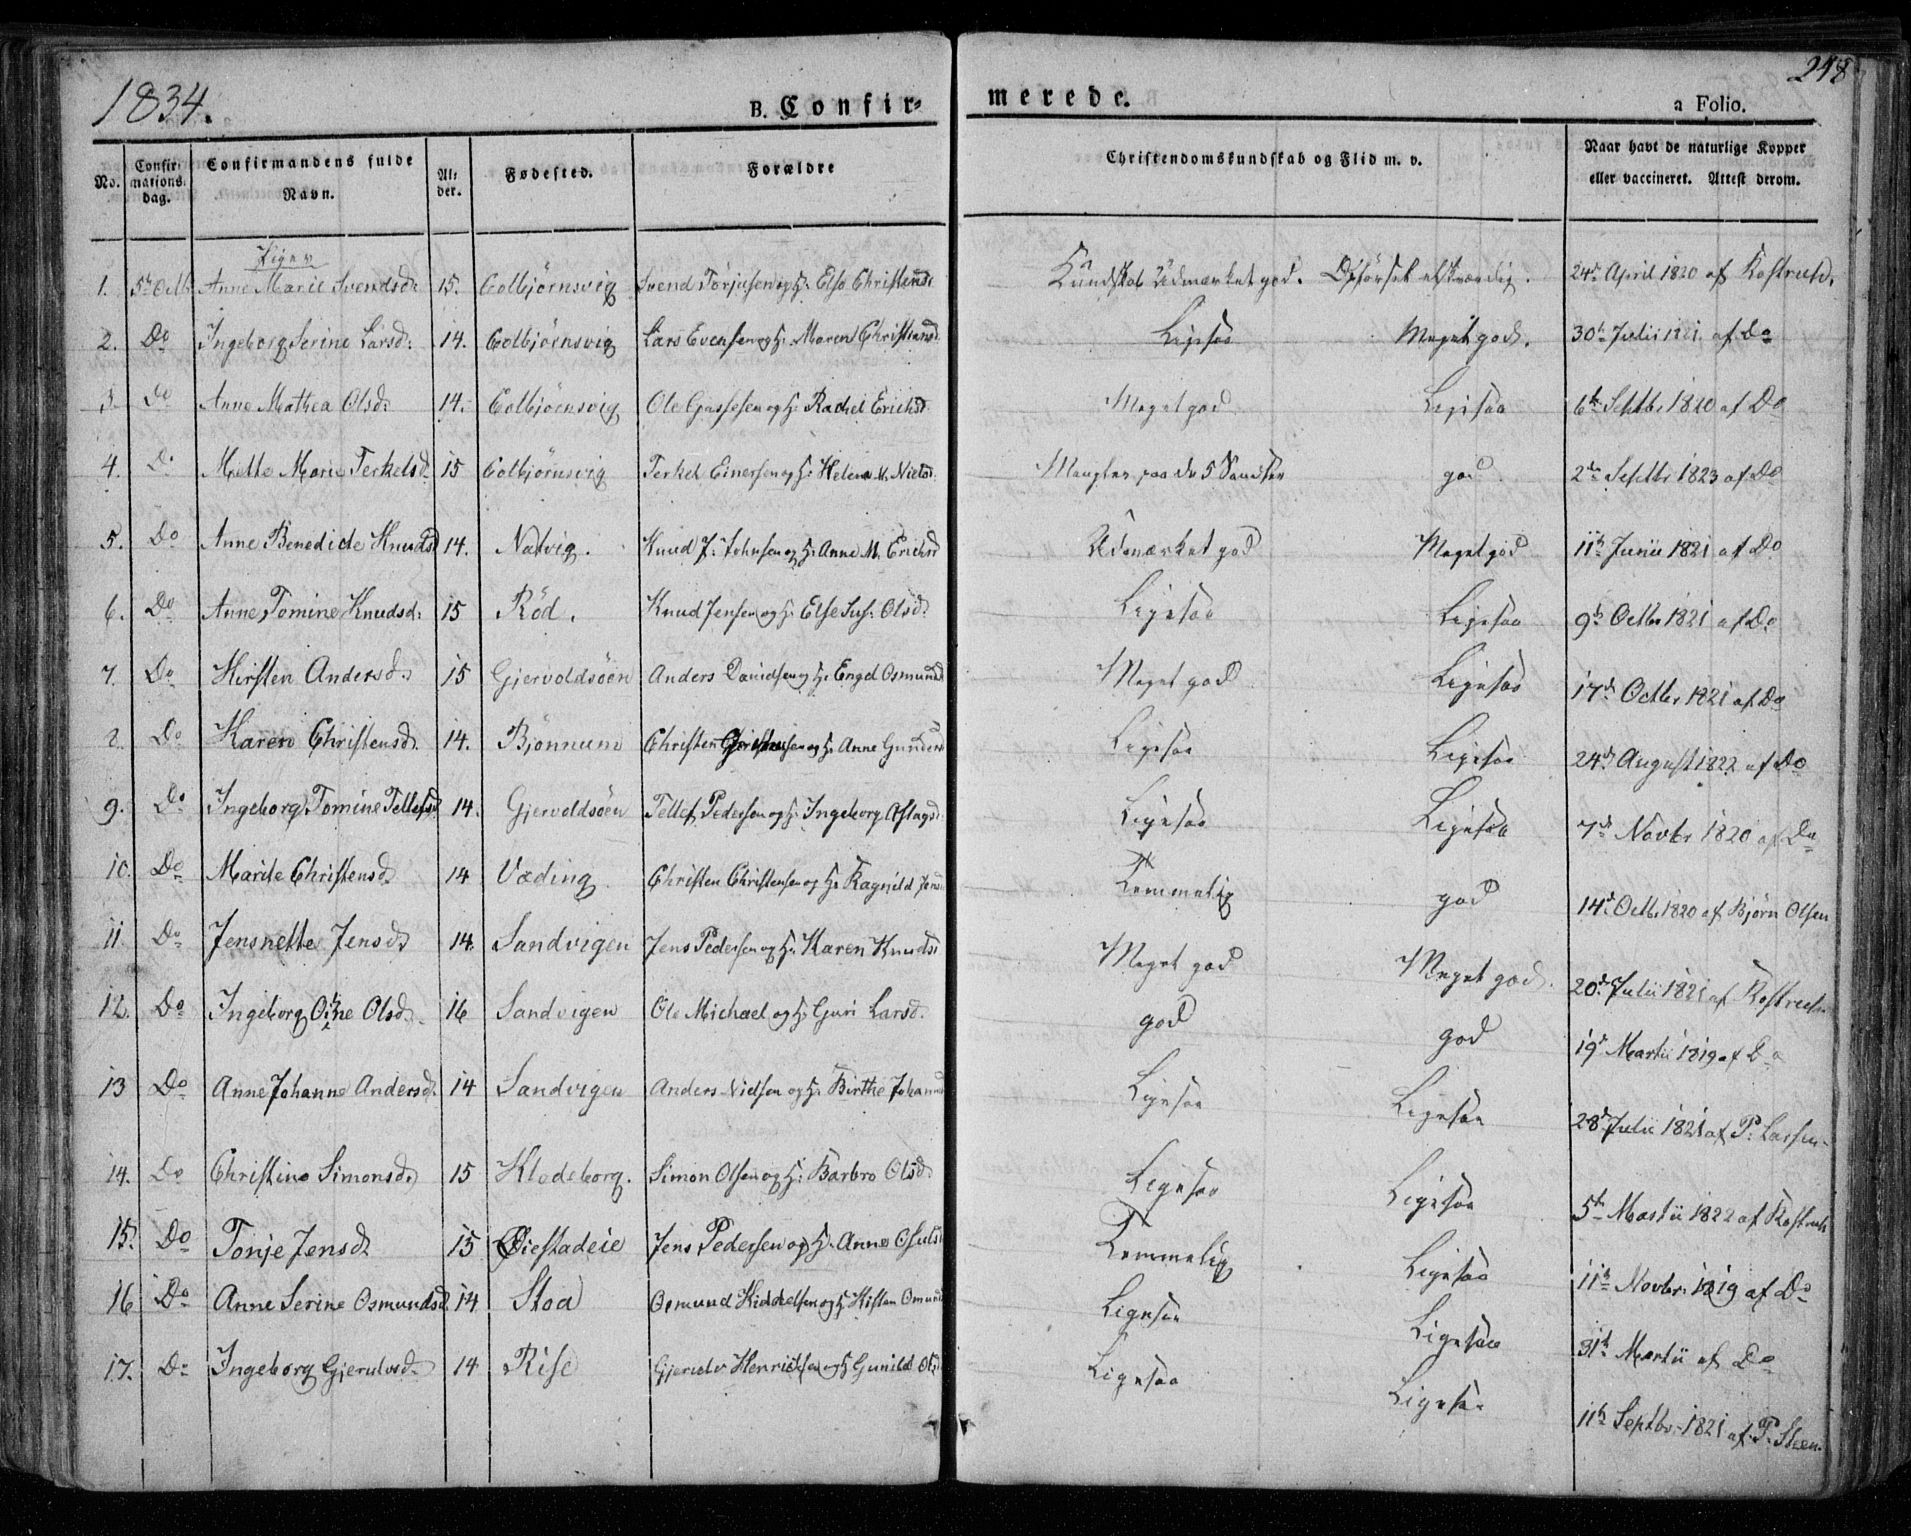 1834. B. Confir- merede. 248
a Folio.
No. Confirmations dag. Confirmandens fulde Navn. Alder. Fødested. Forældre Christendomskundskab og Flid m. v. Naar havt de naturlige Kopper eller vaccineret. Attest derom.
Piger
1. 5te Octb Anne Marie Svendsd: 15. Colbjörnsvig Svend Torjusen og H: Else Christensd: Kundskab Udmærket god. Opförsel elskværdig. 24de April 1820 af Kostrud.
2. Do Ingeborg Serine Larsd: 14. Colbjörnsvig Lars Evensen og H: Maren Christiansd. Ligesaa Meget god. 30te Julii 1821 af Do
3. Do Anne Mathea Olsd: 14. Colbjörnsvig Ole Gassesen og H: Rachel Erichsd. Meget god Ligesaa 6te Septbr 1820 af Do
4. Do Mette Marie Terkelsd. 15 Colbjörnsvig Terkel Einersen og H: Helene M. Nielsd. Mangler paa de 5 god 2den Septbr 1823 af Do
5. Do Anne Benedicte Knudsd 14. Natvig. Knud J. Johnsen og H: Anne M. Erichsd Udmærket god Meget god 11te Junii 1821 af Do
6. Do Anne Tomine Knudsd: 15 Röd. Knud Jensen og H: Else Sus: Olsd: Ligesaa Ligesaa 9de Octbr 1821 af Do
7. Do Kirsten Andersd. 15 Gjervoldsöen Anders Danielsen og H: Engel Osmundsd Meget god Ligesaa 17de Octbr 1821 af Do
8. Do Karen Christensd. 14. Bjönnum Christen Christensen og H: Anne Gundersd Ligesaa Ligesaa 24de August 1822 af Do
9. Do Ingeborg Tomine Tellefsd. 14. Gjervoldsöen Tellef Pedersen og H: Ingeborg Aslagsd: Ligesaa Ligesaa 7de Novbr 1820 af Do
10. Do Marite Christensd. 14 Væding Christen Christensen og H: Ragnild Jensd Temmelig god 14de Octbr 1820 af Bjørn Olsen
11 Do Jensnette Jensd. 14. Sandvigen Jens Pedersen og H: Karen Knudsd: Meget god Meget god. 20de Julii 1821 af Kostrud
12. Do Ingeborg Olsd. 16 Sandvigen Ole Michael og H: Guri Larsd. god god 19de Martii 1819 af Do
13 Do Anne Johanne Andersd. 14 Sandvigen Anders Nielsen og H: Birthe Johannesd Ligesaa Ligesaa 28de Julii 1821 af P. Larsen
14. Do Christine Simonsd. 15 Klodeborg. Simon Olsen og H: Barbro Olsd. Ligesaa Ligesaa 5te Martii 1822 af Kostrud
15. Do Tonje Jensd. 15 Øiestadeie Jens Pedersen og H. Anne Osulsd Temmelig Ligesaa 11te Novbr. 1819 af Do
16 Do Anne Serine Osmundsd. 14 Stoa Osmund Kiddelsen og H Kisten Omunds Ligesaa Ligesaa 31te Martii af Do
17. Do Ingeborg Gjerulvsd. 14 Rise Gjerulv Henrichsen og H Gunild Olsd Ligesaa Ligesaa 11te Septbr. 1821 af P. Steen.